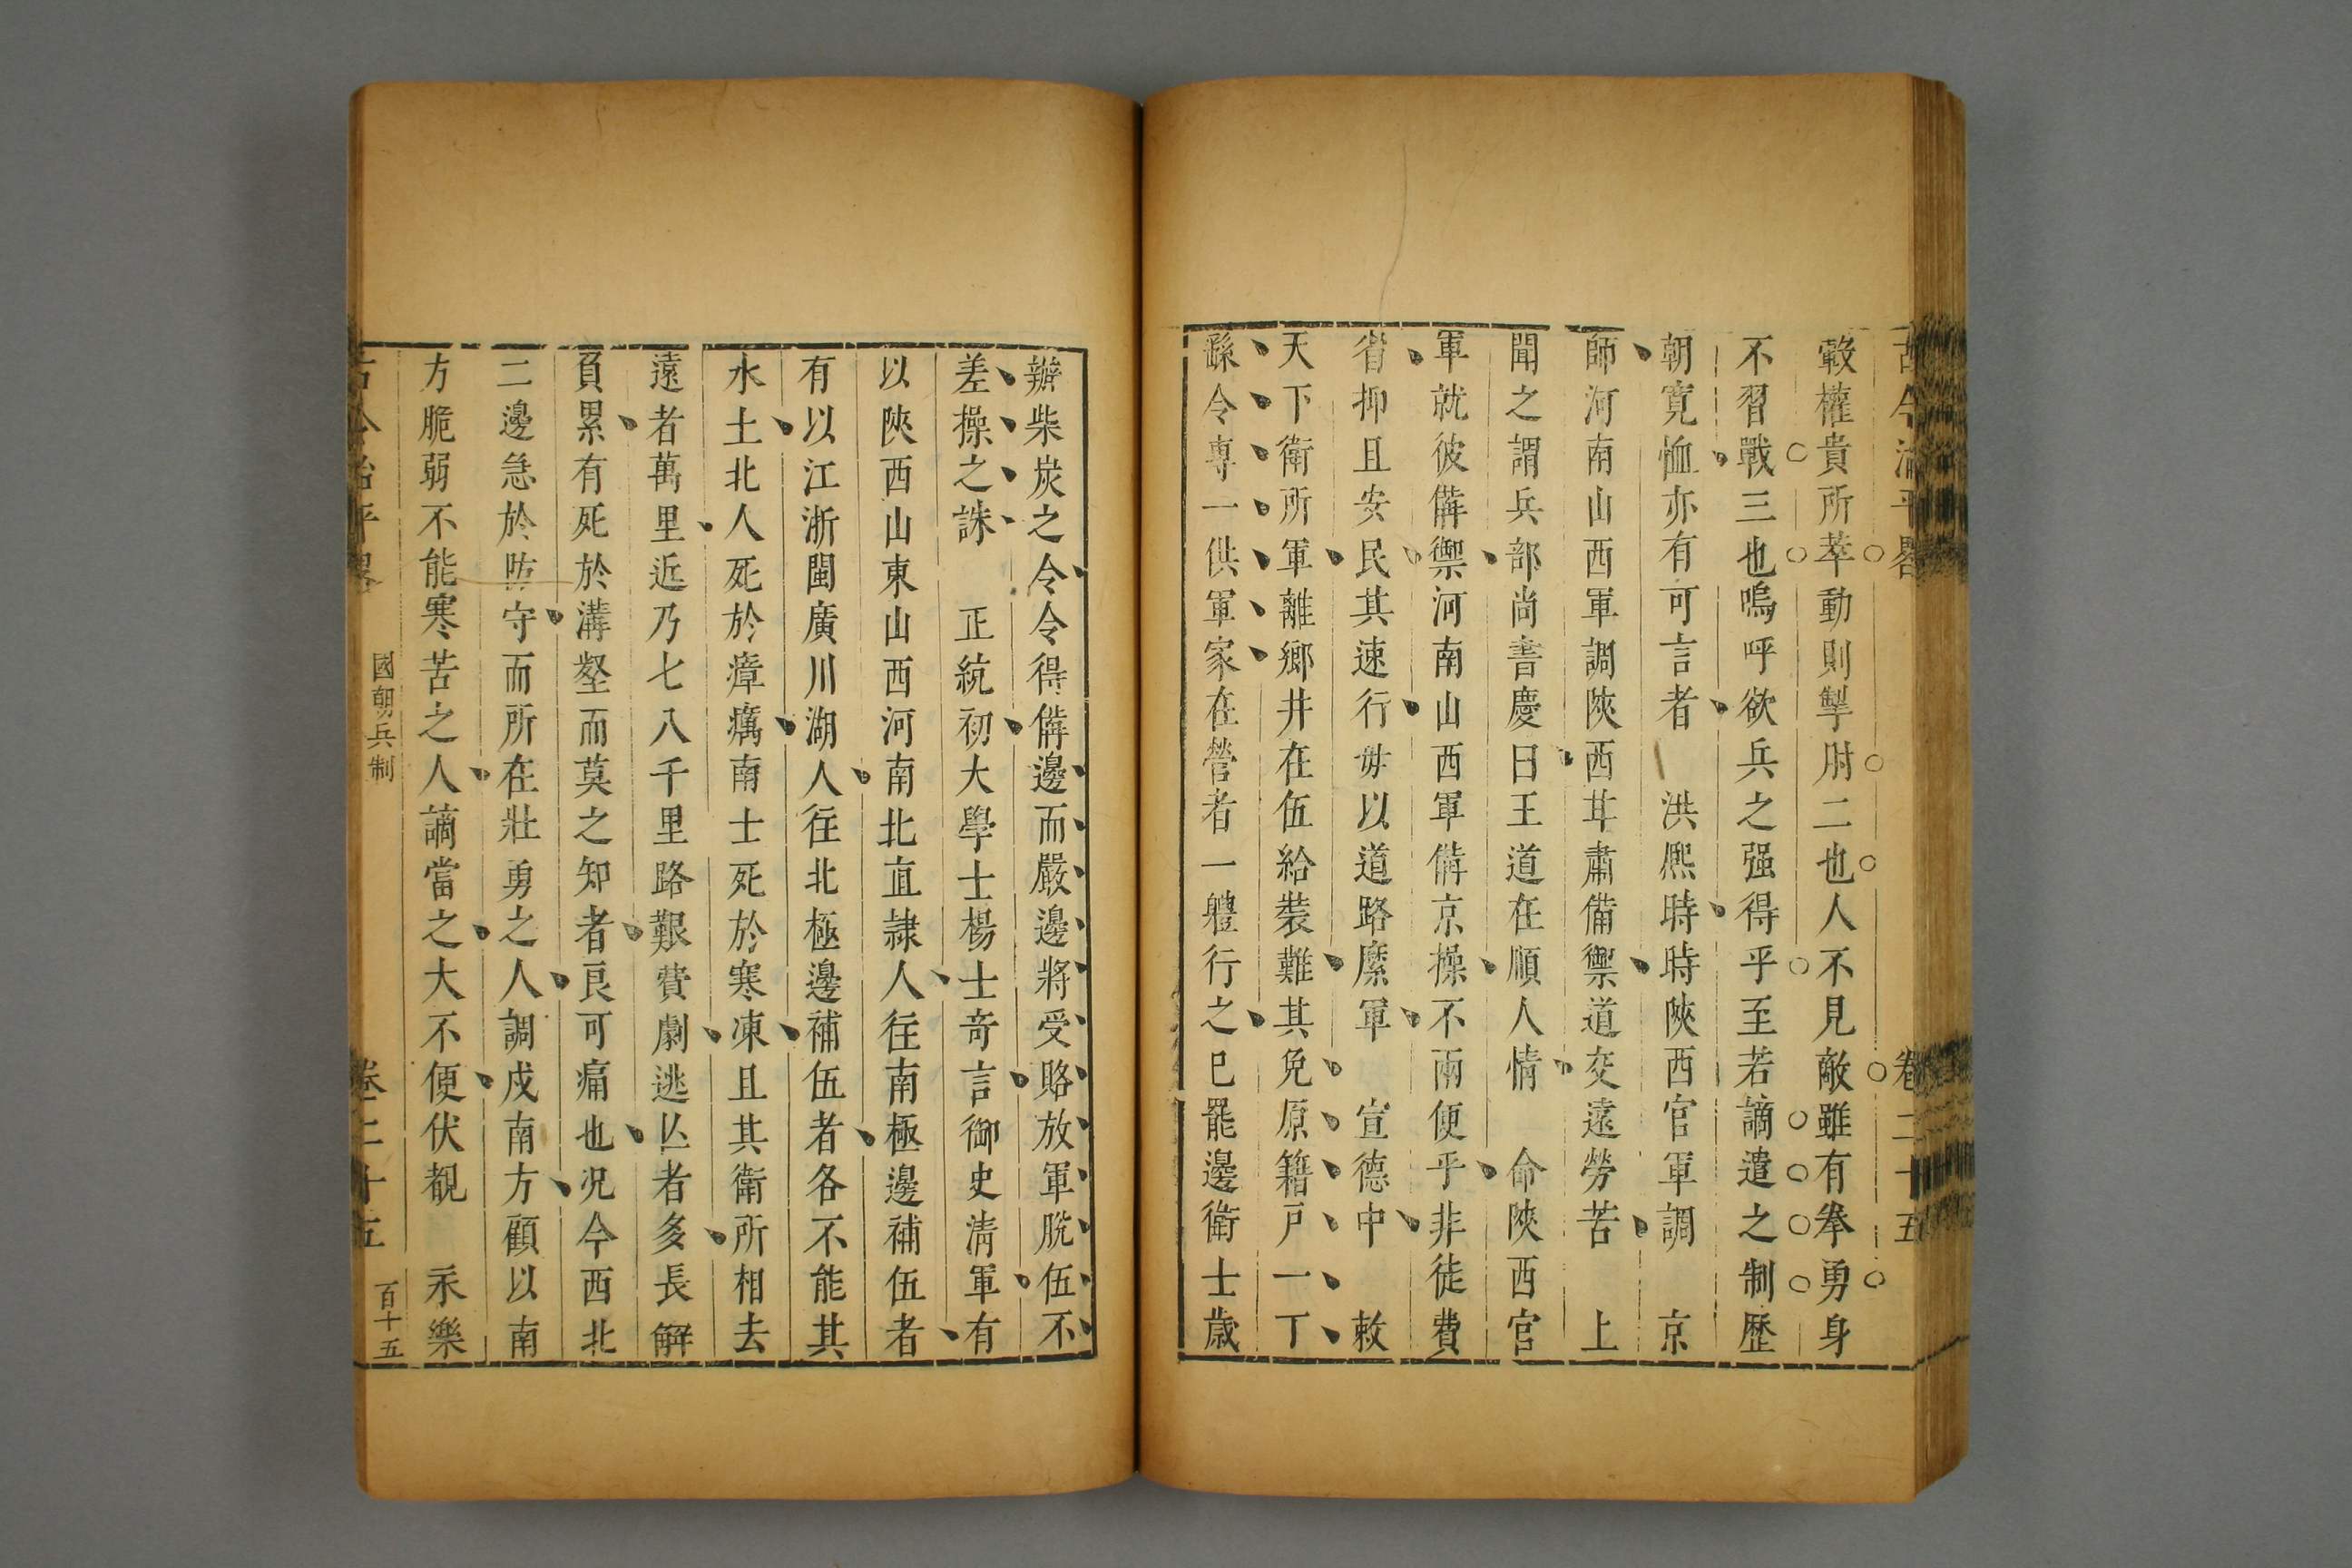 古今治平畧　卷二十五
轂權貴所萃動則掣肘二也人不見敵雖有拳勇身
不習戰三也嗚呼欲兵之强得乎至若謫遣之制歷
朝寛恤亦有可言者　洪熈時時陜西官軍調　京
師河南山西軍調陜西甘肅備禦道交遠勞苦　上
聞之謂兵部尚書慶曰王道在順人情　命陜西官
軍就彼備禦河南山西軍備京操不兩便乎非徒費
省抑且安民其速行毋以道路縻軍　宣德中　敕
天下衛所軍離鄉井在伍給裝難其免原籍戸一丁
繇令專一供軍家在營者一體行之巳罷邊衛士歳
辦柴炭之令令得備邊而嚴邊將受賂放軍脫伍不
差操之誅　正統初大學士楊士竒言御史淸軍有
以陜西山東山西河南北直隷人往南極邊補伍者
有以江浙閩廣川湖人往北極邊補伍者各不能其
水土北人死於瘴癘南士死於寒凍且其衛所相去
遠者萬里近乃七八千里路艱費劇逃亾者多長解
負累有死於溝壑而莫之知者良可痛也况今西北
二邊急於防守而所在壯勇之人調戍南方顧以南
方脆弱不能寒苦之人謫當之大不便伏覩　永樂
古今治平畧　國朝兵制　卷二十五　百十五